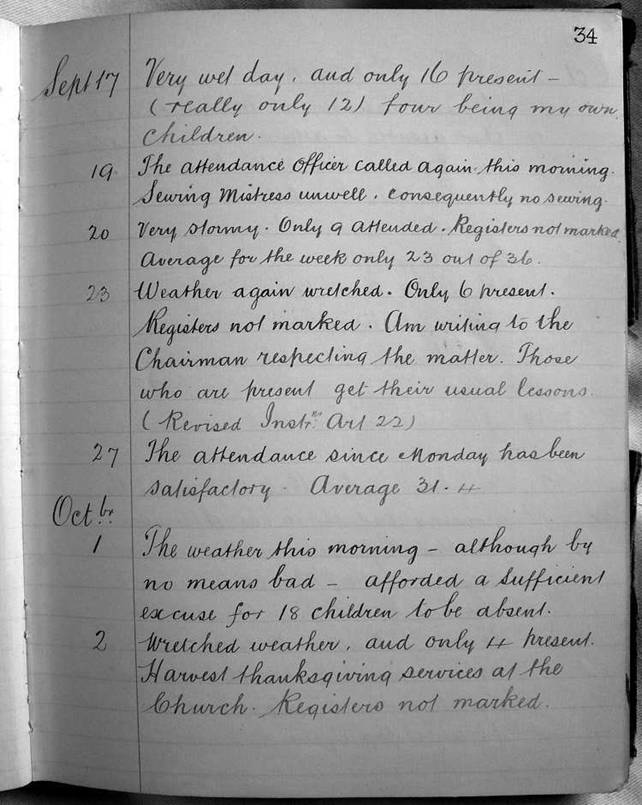 34
Sept 17 Very wet day, and only 16 present –
(really only 12) four being my own
children.
19 The attendance officer called again this morning.
Sewing Mistress unwell. consequently no sewing.
20 Very stormy. Only 9 attended. Registers not marked.
Average for the week only 23 out of 36.
23 Weather again wretched. Only 6 present.
Registers not marked. Am writing to the
Chairman respecting the matter. Those
who are present get their usual lessons.
(Revised Instr.ns Art 22)
27 The attendance since Monday has been
satisfactory. Average 31.4
Oct.br
1 The weather this morning – although by
no means bad – afforded a sufficient
excuse for 18 children to be absent.
2 Wretched weather, and only 4 present.
Harvest thanksgiving services at the
Church. Registers not marked.